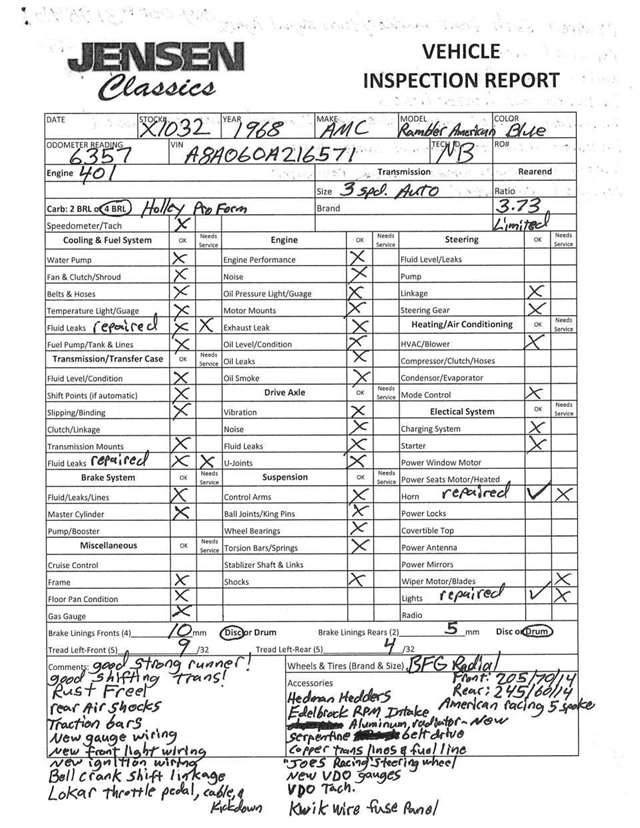 JENSEN
Classics
VEHICLE
INSPECTION REPORT
DATE STOCK# X1032 YEAR 1968 MAKE AMC MODEL Rambler American COLOR Blue
ODOMETER READING 6357 VIN A8A060A216571 TECH ID NB RO#
Engine 401 Transmission Rearend
Size 3 spd. Auto Ratio
Carb: 2 BRL or 4 BRL Holley Pro Form Brand 3.73
Speedometer/Tach X Limited
Cooling & Fuel System OK Needs Service Engine OK Needs Service Steering OK Needs Service
Water Pump X Engine Performance X Fluid Level/Leaks
Fan & Clutch/Shroud X Noise X Pump
Belts & Hoses X Oil Pressure Light/Guage X Linkage X
Temperature Light/Guage X Motor Mounts X Steering Gear X
Fluid Leaks repaired X X Exhaust Leak X Heating/Air Conditioning OK Needs Service
Fuel Pump/Tank & Lines X Oil Level/Condition X HVAC/Blower X
Transmission/Transfer Case OK Needs Service Oil Leaks X Compressor/Clutch/Hoses
Fluid Level/Condition X Oil Smoke X Condensor/Evaporator
Shift Points (if automatic) X Drive Axle OK Needs Service Mode Control X
Slipping/Binding X Vibration X Electical System OK Needs Service
Clutch/Linkage Noise X Charging System X
Transmission Mounts X Fluid Leaks X Starter X
Fluid Leaks repaired X X U-Joints X Power Window Motor
Brake System OK Needs Service Suspension OK Needs Service Power Seats Motor/Heated
Fluid/Leaks/Lines X Control Arms X Horn repaired ✓ X
Master Cylinder X Ball Joints/King Pins X Power Locks
Pump/Booster Wheel Bearings X Covertible Top
Miscellaneous OK Needs Service Torsion Bars/Springs X Power Antenna
Cruise Control Stablizer Shaft & Links Power Mirrors
Frame X Shocks X Wiper Motor/Blades X
Floor Pan Condition X Lights repaired ✓ X
Gas Gauge X Radio
Brake Linings Fronts (4) 10 mm Disc or Drum Brake Linings Rears (2) 5 mm Disc or Drum
Tread Left-Front (5) 9 /32 Tread Left-Rear (5) 4 /32
Comments: good strong runner!
good shifting trans!
Rust Free!
rear Air shocks
Traction bars
New gauge wiring
New front light wiring
New ignition wiring
Bell crank shift linkage
Lokar throttle pedal, cable, &
Kickdown
Wheels & Tires (Brand & Size) BFG Radial
Front: 205/70/14
Rear: 245/60/14
American racing 5 spoke
Accessories
Hedman Hedders
Edelbrock RPM Intake
Aluminum, radiator - New
Serpentine belt drive
copper trans lines & fuel line
"JOES Racing" steering wheel
New VDO gauges
VDO Tach.
Kwik wire fuse Panel